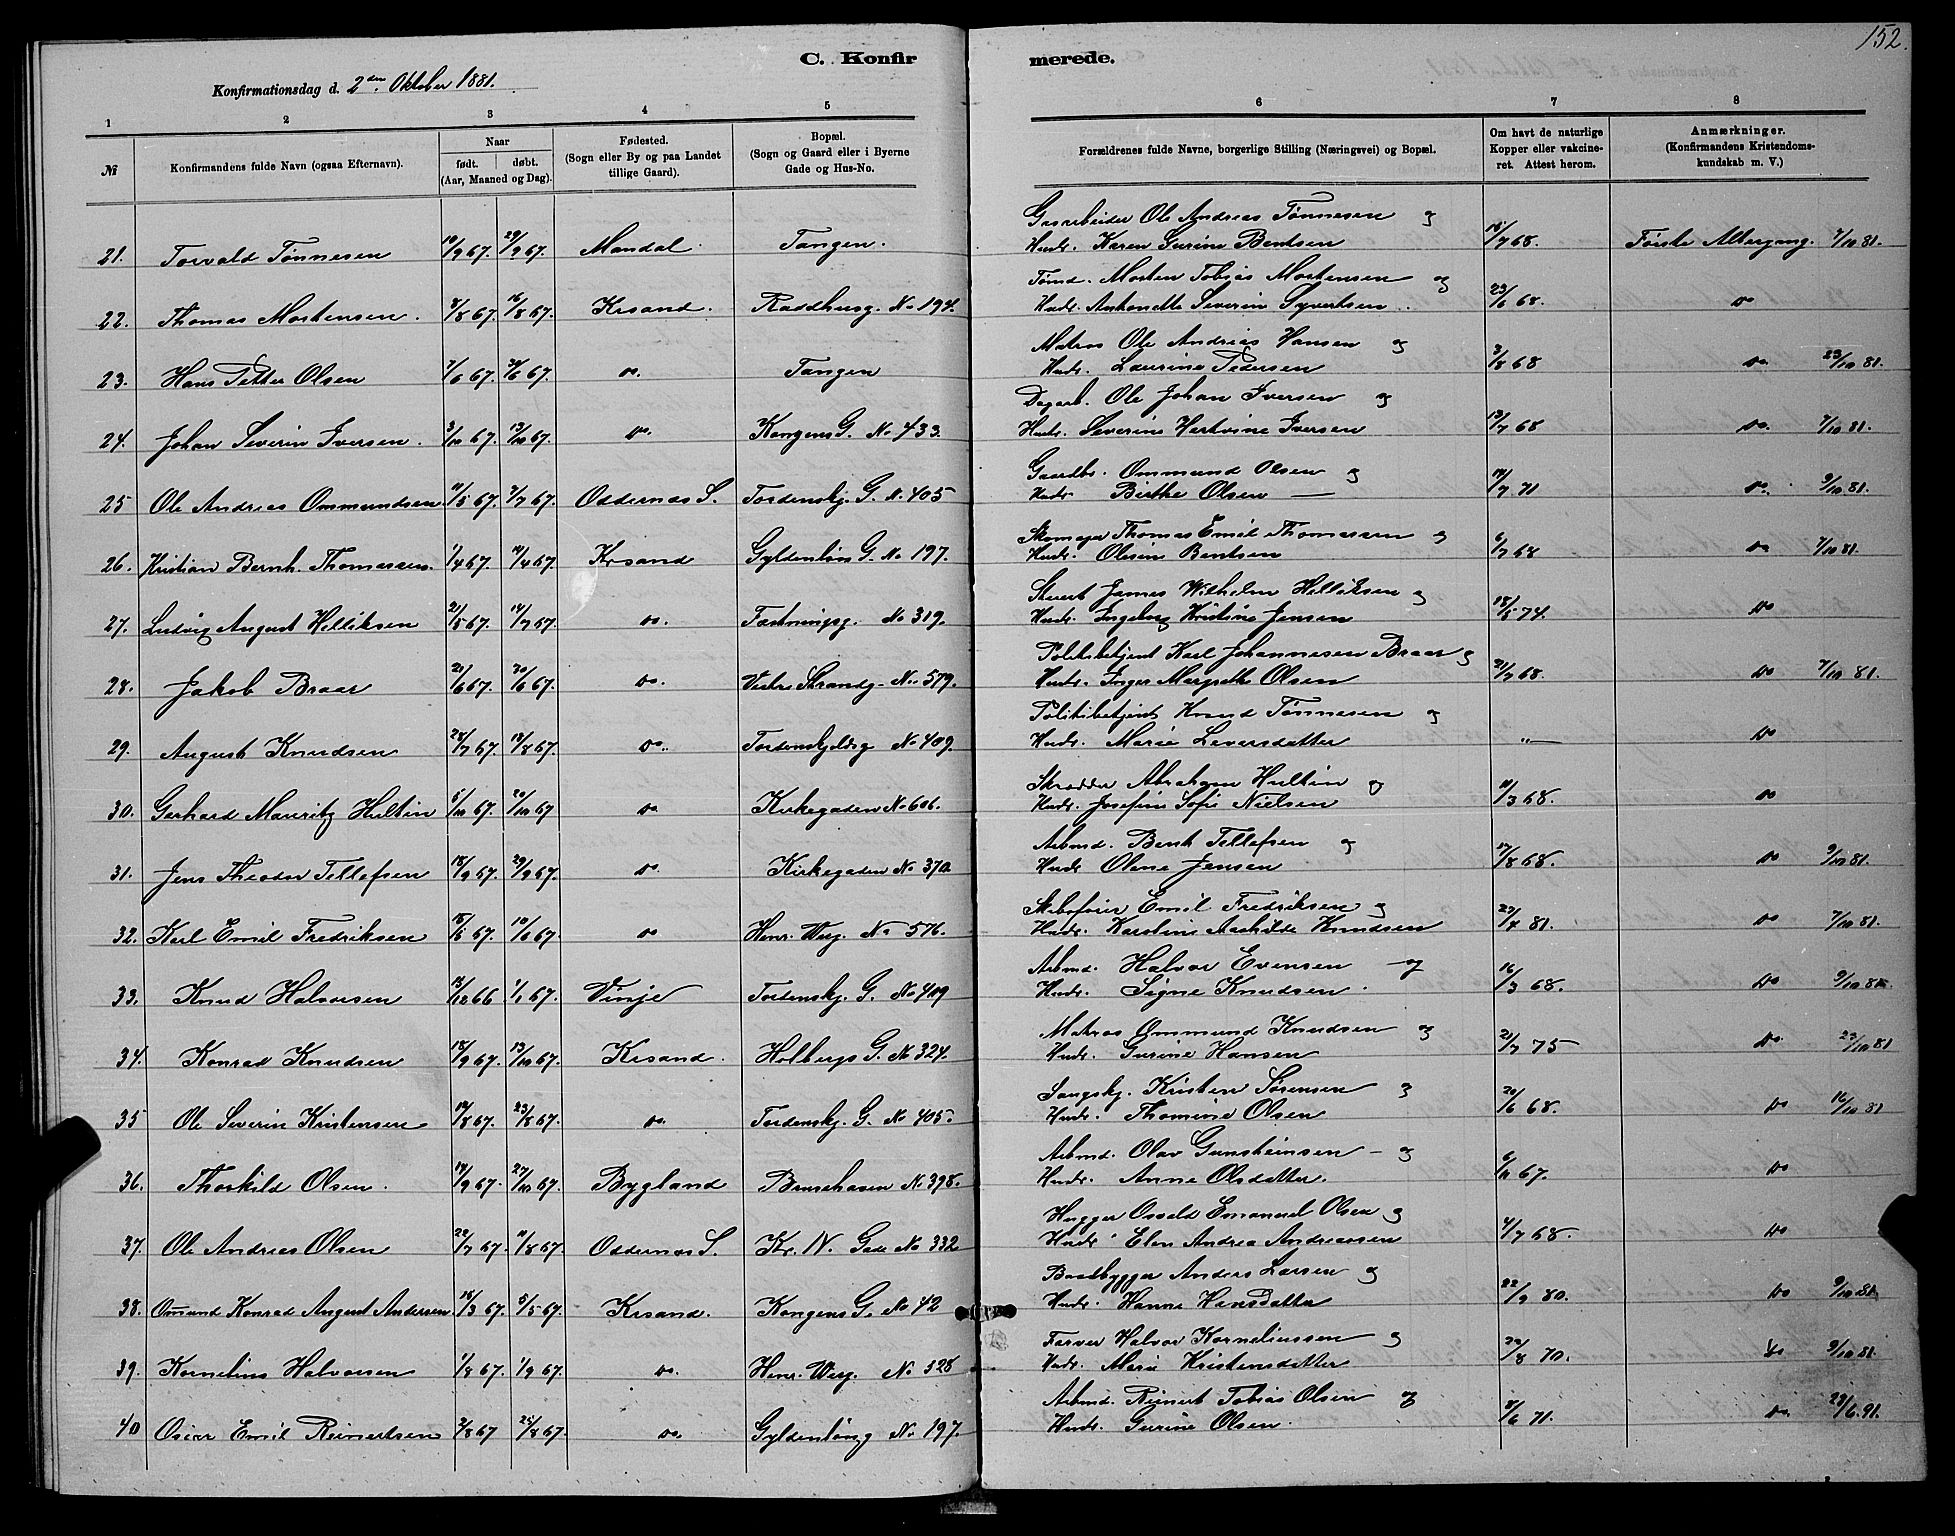 152.
C. Konfirmerede.
Konfirmationsdag d. 2den Oktober 1881.
1 2 3 4 5 6 7 8
№
Konfirmandens fulde Navn (ogsaa Efternavn).
Naar
født. døbt.
(Aar, Maaned og Dag).
Fødested.
(Sogn eller By og paa Landet
tillige Gaard).
Bopæl.
(Sogn og Gaard eller i Byerne
Gade og Hus-No.
Forældrenes fulde Navne, borgerlige Stilling (Næringsvei) og Bopæl.
Om havt de naturlige
Kopper eller vakcine-
ret. Attest herom.
Anmærkninger.
(Konfirmandens Kristendoms-
kundskab m. V.)
Gasarbeider Ole Andreas Tønnesen og
21. Torvald Tønnesen 19/9 67. 29/9 67. Mandal. Tangen. Hustr. Karen Gurine Bentsen /7 68. Første Altergang. 7/10 81.
Tømd. Morten Tobias Mortensen og
22. Thomas Mortensen. 8/8 67. 16/8 67. Krsand. Raadhusg. No 194. Hustr. Antonette Severin Syvertsen 23/6 68. do
Matros Ole Andreas Hansen og
23. Hans Petter Olsen 7/6 67. 30/6 67. do. Tangen Hustr. Laurine Pedersen 3/8 68 do. 23/10 81.
Dagarb. Ole Johan Iversen og
24. Johan Severin Iversen. 3/10 67. 13/10 67. do. Kongens G. No 433. Hustr. Severine Hartvine Iversen 13/7 68 do. 7/10 81.
Gaardbr. Ommund Olsen og
25 Ole Andreas Ommundsen 11/5 67. 7/7 67. Oddernæs S. Tordenskj. G. No 405 Hustr. Birthe Olsen 17/7 71 do. 9/10 81.
Skomager Thomas Emil Thomassen og
26. Kristian Bernh. Thomassen. 1/4 67. 14/4 67. Krsand Gyldenløvs G. No 197. Hustr. Olesin Bentsen 6/7 68 do 7/10 81.
Stuert James Wilhelm Helliksen og
27. Ludvig August Helliksen 21/5 67. 14/7 67. do. Fæstningsg. No 319. Hustr. Ingeborg Kristine Jensen 18/5 74. do
Politibetjent Karl Johannesen Braar og
28. Jakob Braar 21/6 67. 30/6 67. do. Vestre Strandg. No 579. Hustr. Inger Margrethe Olsen 21/7 68. do 7/10 81.
Politibetjent Knud Tønnesen og
29. August Knudsen 28/7 67. 18/8 67. do. Tordenskjoldsg No 409. Hustr. Marie Leversdatter „— do
Skrædder Abraham Hultin og
30. Gerhard Mauritz Hultin 5/10 67. 20/10 67 do Kirkegaden No 606. Hustr. Josefine Sofie Nielsen 10/3 68. do
Arbmd. Bent Tellefsen og
31. Jens Theodor Tellefsen 18/9 67. 29/9 67. do. Kirkegaden No 370. Hustr Olene Jensen 17/8 68. do 9/10 81.
Emil Fredriksen og
32. Karl Emil Fredriksen 67. 67. do Henr. Werg. No 576. Hustr. Karoline Mathilde Knudsen 27/4 81. do 7/10 81.
Arbmd. Halvor Evensen — og
33. Knud Halvorsen 13/12 66 1/1 67. Vinje Tordenskj. G. No 409 Hustr. Signe Knudsen. 16/3 68. do 9/10 81.
Matros Ommund Knudsen og
34. Konrad Knudsen 18/9 67. 13/10 67. Krsand. Holbergs G. No 324. Hustr. Gurine Hansen 21/7 75 do. 23/10 81
Kristen Sørensen og
35 Ole Severin Kristensen 14/8 67. 23/8 67. do. Tordenskj. G. No 405. Hustr. Thomine Olsen 20/6 68. do 16/10 81
Arbmd. Olav Gunsteinsen — og
36. Thorkild Olsen. 14/9 67. 27/10 67. Bygland No 398. Hustr. Anne Olsdatter. 67. do
Hugger Osvald Emanuel Olsen og
37. Ole Andreas Olsen 22/7 67. 11/8 67. Oddernæs S. Kr. N. Gade No 332 Hustr Elen Andrea Andreassen 4/7 68. do
Baadbygger Anders Larsen og
38. Omund Konrad August Andersen 16/3 67. 5/5 67. Krsand. Kongens G. No 42 Hustr. Hanne Hansdatter 22/9 80. do 9/10 81.
Farver Halvor Korneliussen og
39. Kornelius Halvorsen 1/8 67. 1/9 67. do. Henr. Werg. No 328 Hustr. Marie Kristensdatter 29/8 70. do 9/10 81.
Arbmd. Reinert Tobias Olsen og
40 Oscar Emil Reinertsen 2/8 67 25/8 67. do. Gyldenløvsg No 197. Hustr. Gurine Olsen. 8/6 71. do. 23/6 91.